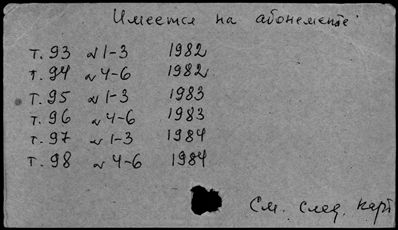 Имеется на абонементе
т. 93 № 1-3 1982
т. 94 № 4-6 1982
т. 95 № 1-3 1983
т. 96 № 4-6 1983
т. 97 № 1-3 1984
т. 98 № 4-6 1984
См. след. карт